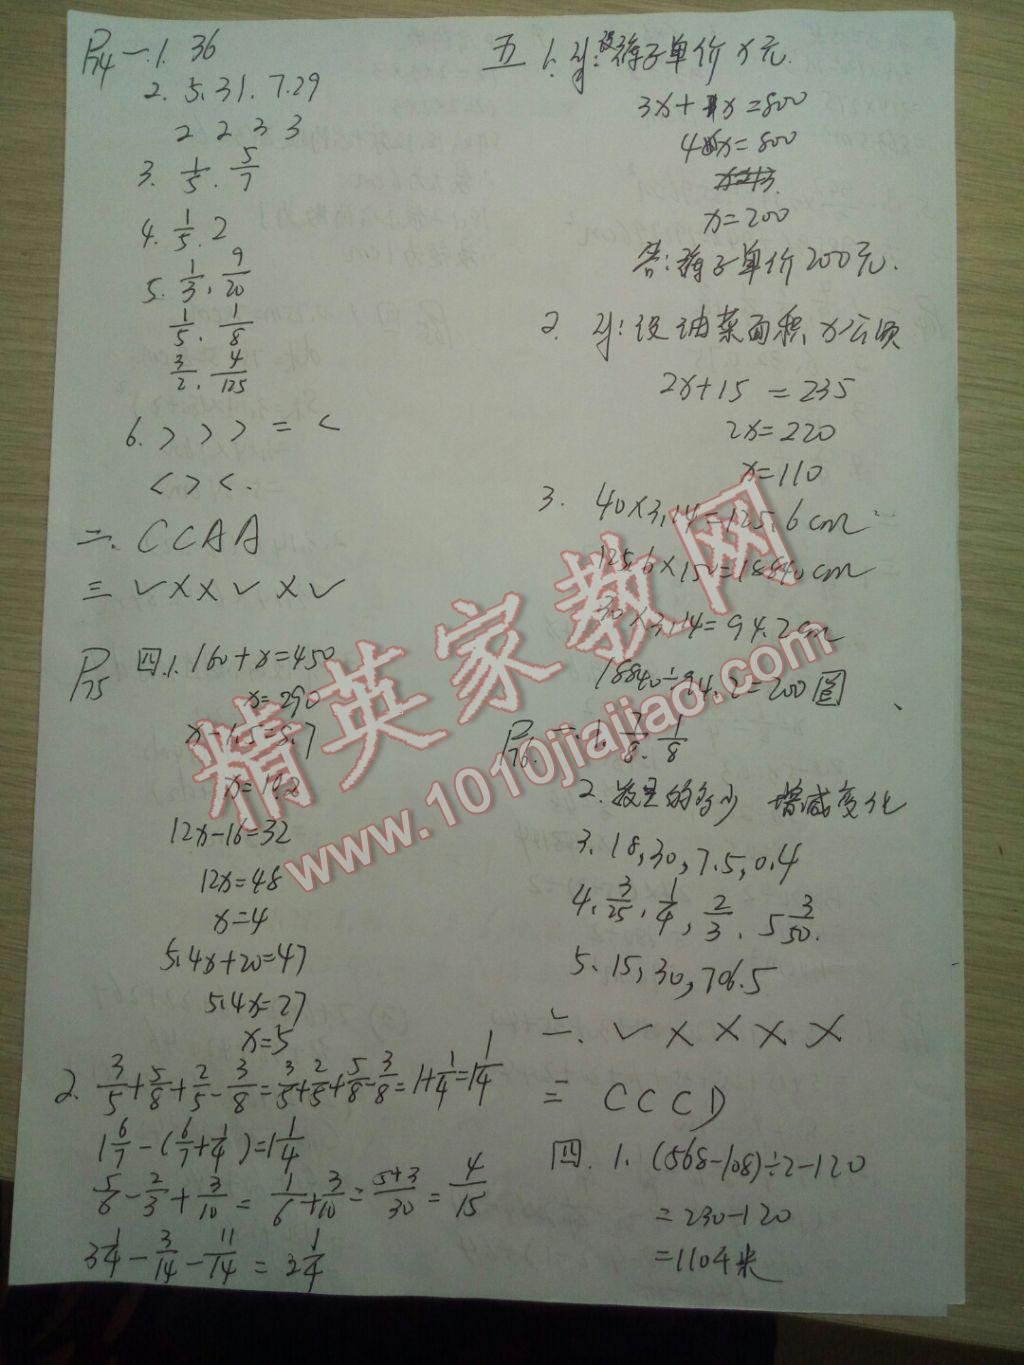 P74 一.1. 36
2. 5. 31. 7. 29
2 2 3 3
3. 1/5. 5/7
4. 1/5. 2
5. 1/3, 9/20
1/5. 1/8
3/2. 4/125
6. > > > = <
< > <.
二. C C A A
三 ✓ × × ✓ × ✓
P75 四.1. 160+x=450
x=290
x=
12x-16=32
12x=48
x=4
5.4x+20=47
5.4x=27
x=5
2. 3/5+5/8+2/5-3/8=3/5+2/5+5/8-3/8=1+1/4=1 1/4
1 6/7-(6/7+1/4)=1 1/4
5/6-2/3+3/10=1/6+3/10=5+3/30=4/15
3 1/4-3/14-11/14=2 1/4
五 1. 设裤子单价x元.
3x+1x=800
4x=800
x=200
答:裤子单价200元.
2. 设油菜面积x公顷
2x+15=235
2x=220
x=110
3. 40×3.14=125.6cm
125.6×150=18840cm
30×3.14=94.2cm
18840÷94.2=200圈
P76. 一.1. 7/8. 1/8
2. 数量的多少 增减变化
3. 18, 30, 7.5, 0.4
4. 3/25. 1/4, 2/3. 5 3/50.
5. 15, 30, 706.5
二. ✓ × × × ×
三 C C C D
四. 1. (568-108)÷2-120
=230-120
=110千米
精英家教网
www.1010jiajiao.com